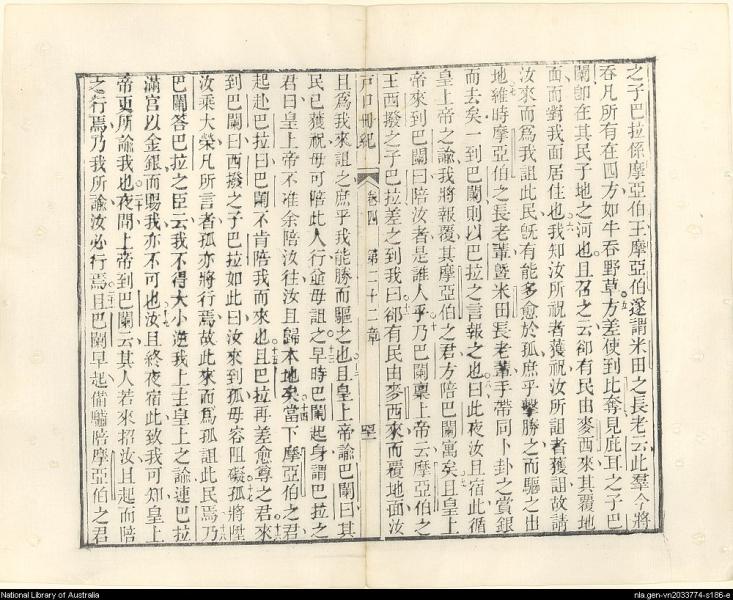 之子巴拉係摩亞伯王摩亞伯遂謂米田之長老云此羣今將
吞凡所有在四方如牛吞野草方差使到比奪見庇耳之子巴
蘭卽在其民子地之河也且召之云卻有民由麥西來其覆地
面而對我面居住也我知汝所祝者獲祝汝所詛者獲詛故請
汝來而爲我詛此民旣有能多愈於孤庶乎擊勝之而驅之出
地維時摩亞伯之長老輩曁米田長老輩手帶同卜卦之賞銀
而去矣一到巴蘭則以巴拉之言報之也曰此夜汝且宿此循
皇上帝之諭我將報覆其摩亞伯之君方陪巴蘭寓矣且皇上
帝來到巴蘭曰陪汝者是誰人乎乃巴蘭稟上帝云摩亞伯之
王西撥之子巴拉差之到我曰卻有民由麥西來而覆地面汝
戶口冊紀 卷四 第二十二章
且爲我來詛之庶乎我能勝而驅之也且皇上帝諭巴蘭曰其
民已獲祝毋可陪此人行並毋詛之早時巴蘭起身謂巴拉之
君曰皇上帝不准余陪汝往汝且歸本地矣當下摩亞伯之君
起赴巴拉曰巴蘭不肯陪我而來也且巴拉再差愈尊之君來
到巴蘭曰西撥之子巴拉如此曰汝來到孤毋容阻礙孤將陞
汝乘大榮凡所言者孤亦將行焉故此來而爲孤詛此民焉乃
巴蘭答巴拉之臣云我不得大小逆我上主皇上之諭連巴拉
滿宮以金銀而賜我亦不可也汝且終夜宿此致我可知皇上
帝更所諭我也夜間上帝到巴蘭云其人若來招汝且起而陪
之行焉乃我所諭汝必行焉且巴蘭早起備驢陪摩亞伯之君
National Library of Australia
nla.gen-vn2033774-s186-e